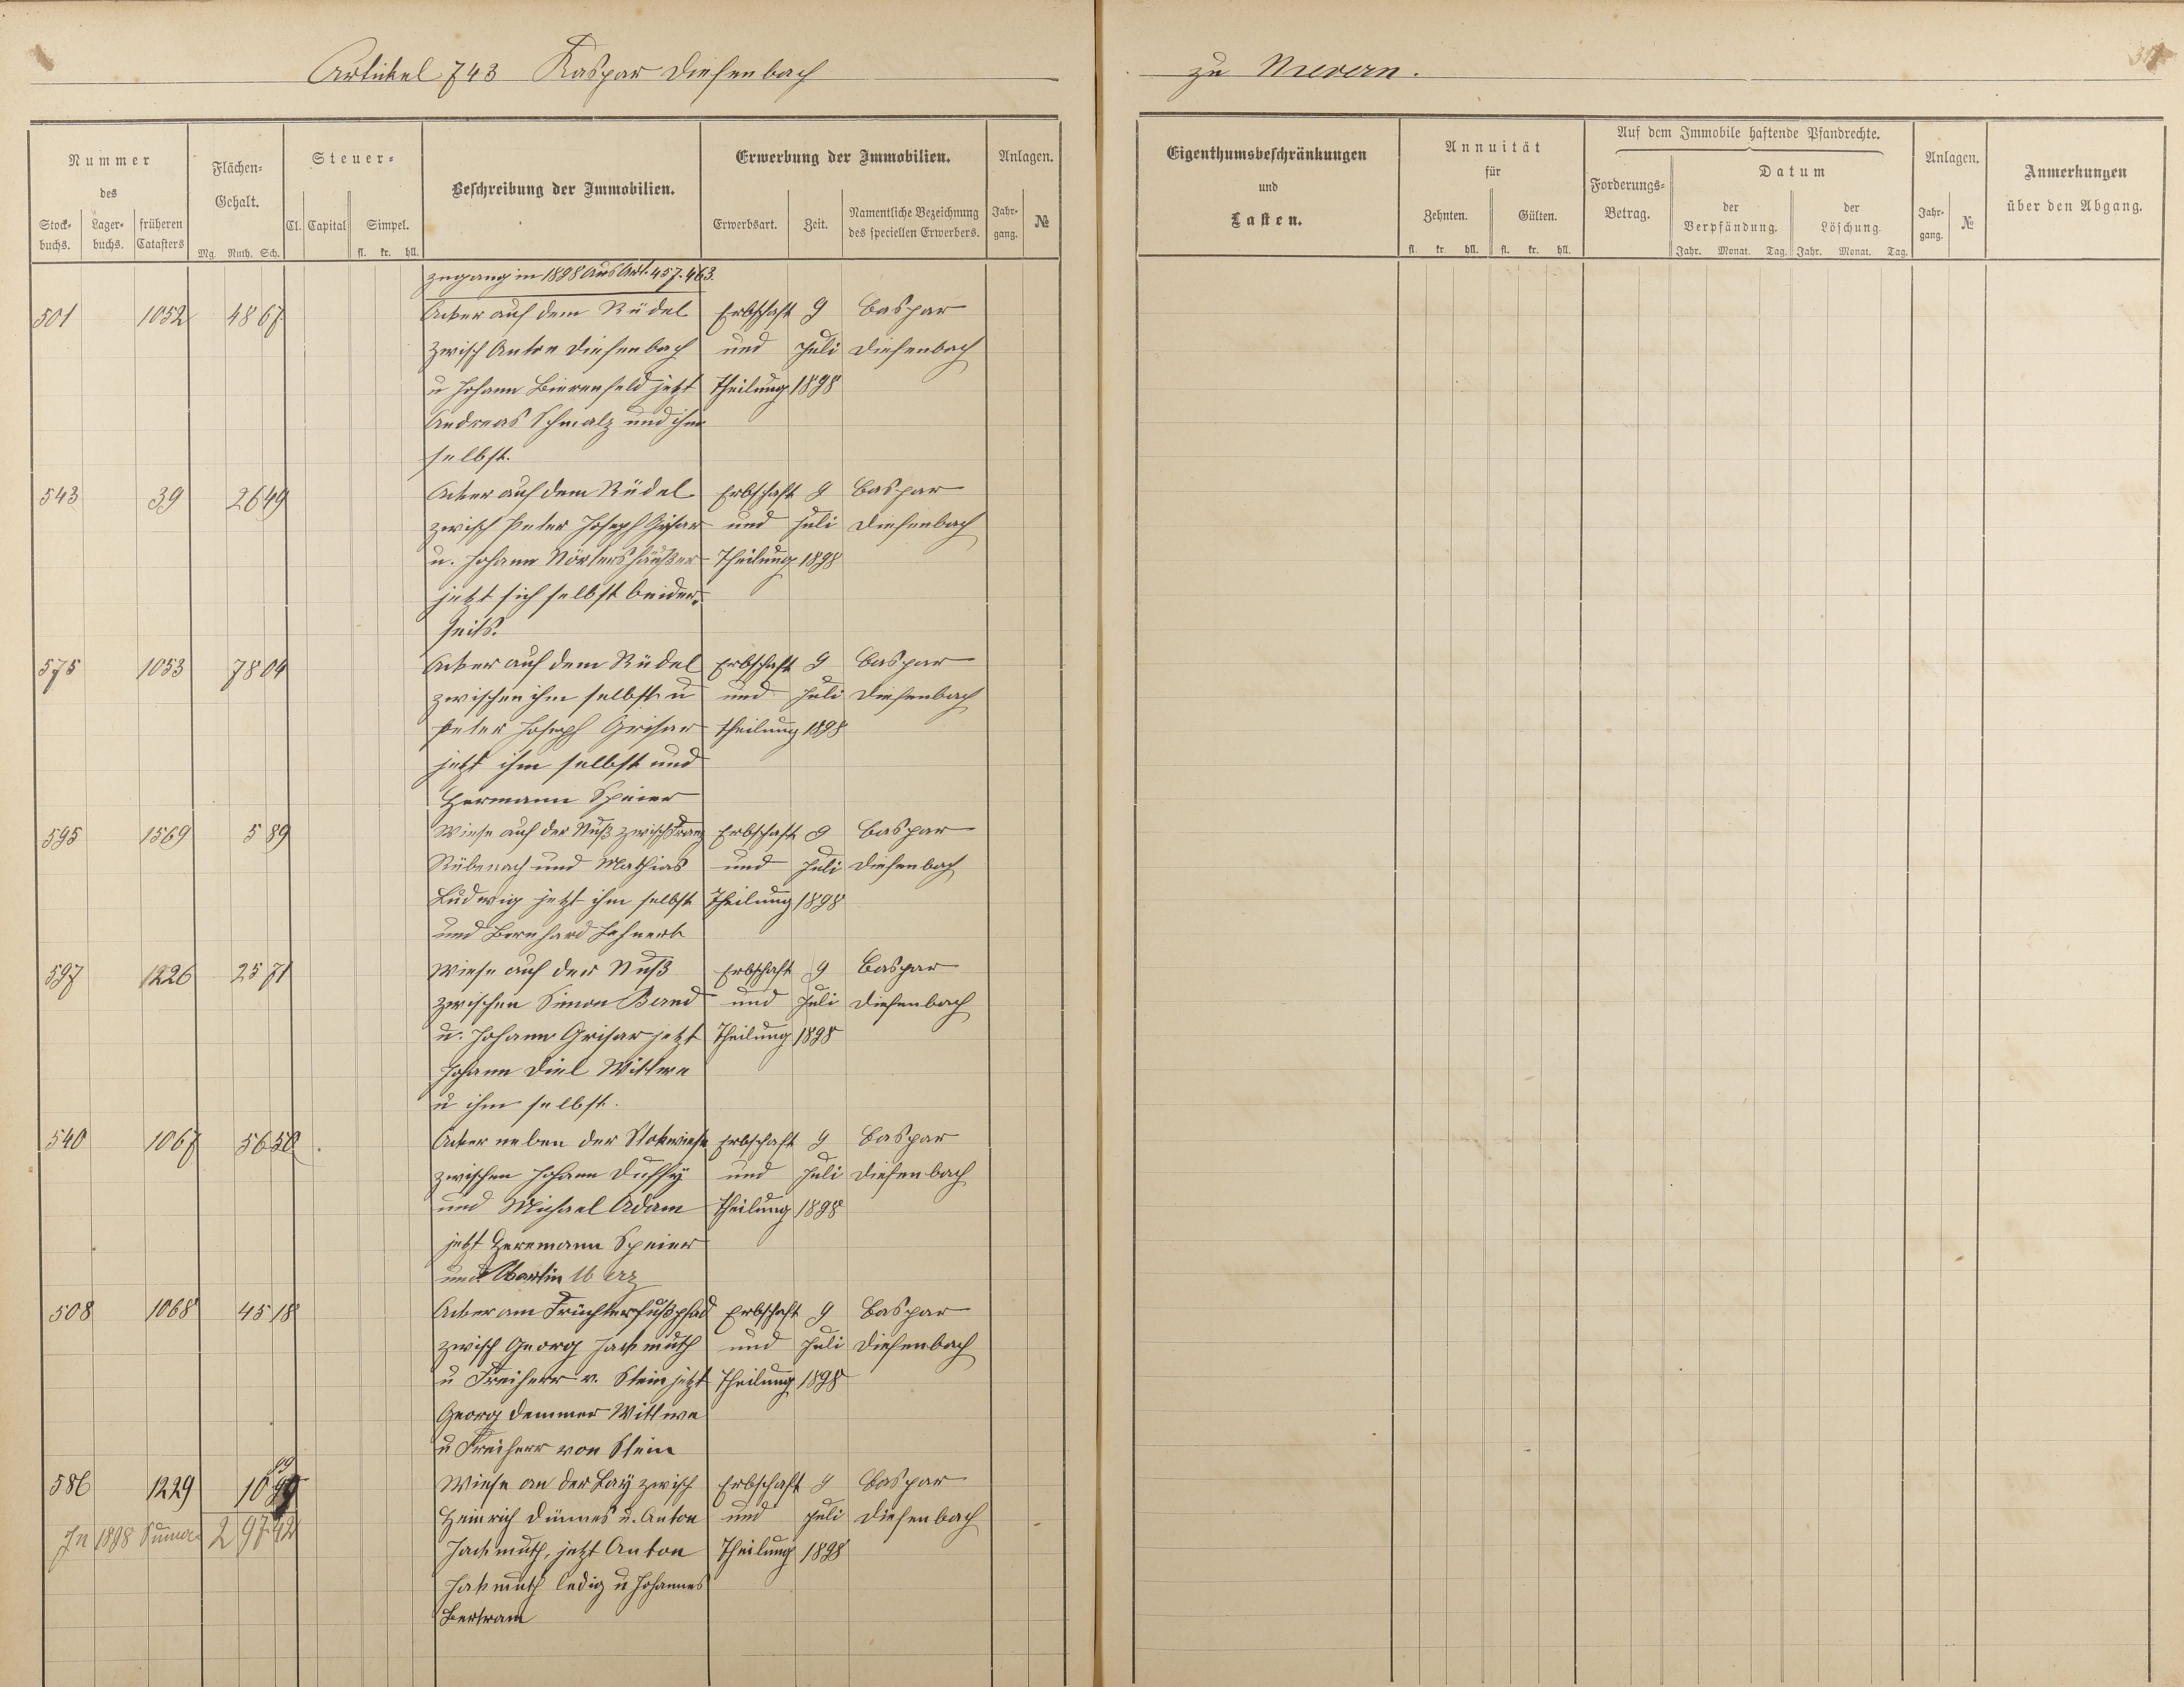 Artikel 743 Kaspar Diefenbach
zu Nievern.
Nummer
des
Stock-
buchs.
Lager-
buchs.
früheren
Catasters
Flächen-
Gehalt.
Mg. Ruth. Sch.
Steuer-
Cl. Capital Simpel.
fl. kr. hll.
Beschreibung der Immobilien.
Erwerbung der Immobilien.
Erwerbsart. Zeit.
Namentliche Bezeichnung
des speciellen Erwerbers.
Anlagen.
Jahr-
gang.
№
Eigenthumsbeschränkungen
und
Lasten.
Annuität
für
Zehnten. Gülten.
fl. kr. hll. fl. kr. hll.
Auf dem Immobile haftende Pfandrechte.
Forderungs-
Betrag.
Datum
der
Verpfändung.
der
Löschung.
Jahr. Monat. Tag. Jahr. Monat. Tag.
Anlagen.
Jahr-
gang.
№
Anmerkungen
über den Abgang.
Zugang in 1898 Aus Art. 457. 463.
501 1052 48 67 Acker auf dem Rüdel Erbschaft 9 Caspar
zwisch Anton Diefenbach und Juli Diefenbach
u Johann Bierenfeld jetzt Theilung 1898
Andreas Schmalz und ihm
selbst.
543 39 26 49 Acker auf dem Rüdel Erbschaft 9 Caspar
zwisch Peter Joseph Grisar und Juli Diefenbach
u. Johann Nörtershäußer Theilung 1898
jetzt sich selbst beider-
seits.
575 1053 78 04 Acker auf dem Rüdel Erbschaft 9 Caspar
zwischen ihm selbst u und Juli Diefenbach
Peter Joseph Grisar Theilung 1898
jetzt ihm selbst und
Hermann Speier
595 1569 5 89 Wiese auf der Nuß zwisch Franz Erbschaft 9 Caspar
Rübenach und Mathias und Juli Diefenbach
Ludwig jetzt ihm selbst Theilung 1898
und Bernhard Lehnert
597 1226 25 71 Wiese auf der Nuß Erbschaft 9 Caspar
zwischen Simon Bernd und Juli Diefenbach
u. Johann Grisar jetzt Theilung 1898
Johann Diel Wittwe
u ihm selbst.
540 1067 56 50 Acker neben der Stokwiese Erbschaft 9 Caspar
zwischen Johann Duffy und Juli Diefenbach
und Michael Adam Theilung 1898
jetzt Hermann Speier
und Martin Merz
508 1068 45 18 Acker am Früchterfußpfad Erbschaft 9 Caspar
zwisch Georg Hackmuth und Juli Diefenbach
u Freiherr v. Stein jetzt Theilung 1898
Georg Demmer Wittwe
u Freiherr von Stein
586 1229 10 Wiese an der Lay zwisch Erbschaft 9 Caspar
Heinrich Dünnes u. Anton und Juli Diefenbach
In 1898 Summa 2 97 42
Hackmuth, jetzt Anton Theilung 1898
Hakmuth ledig u Johannes
Bertram